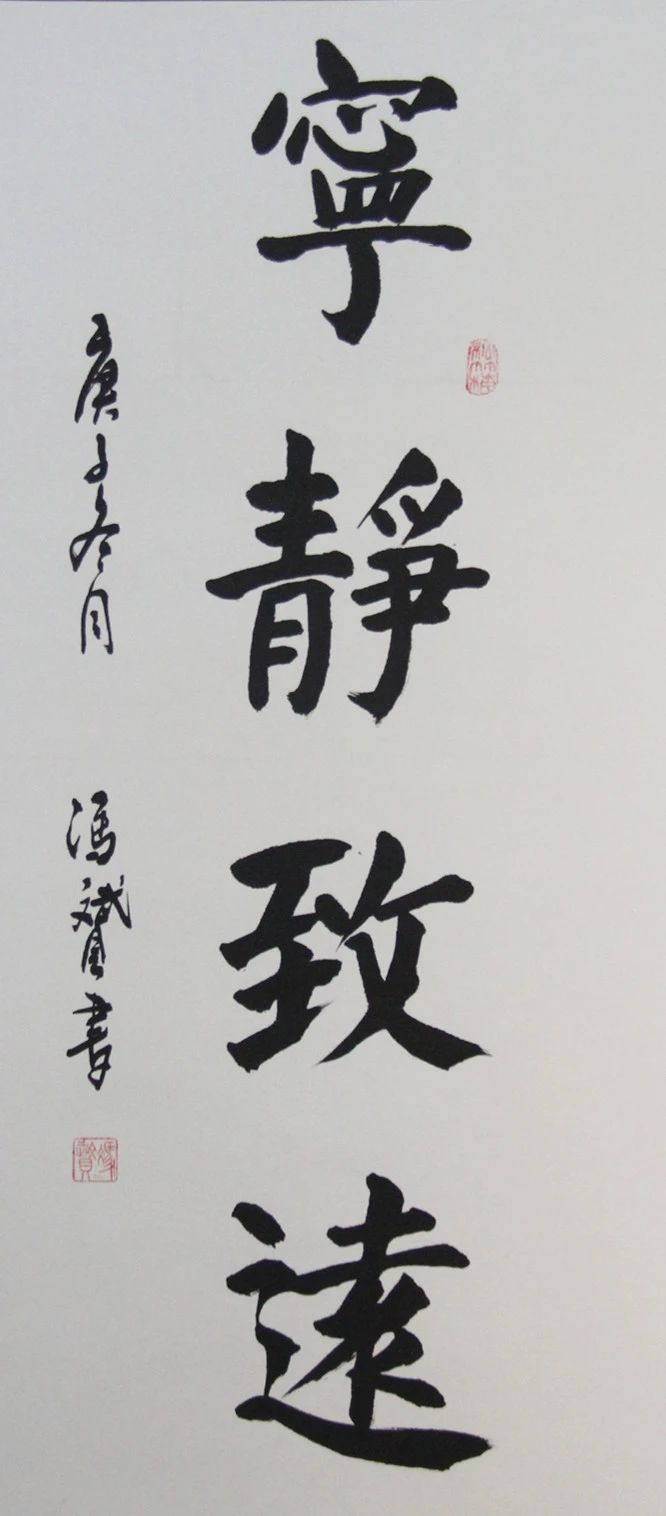 寧靜致遠
庚子冬月
馮贇書